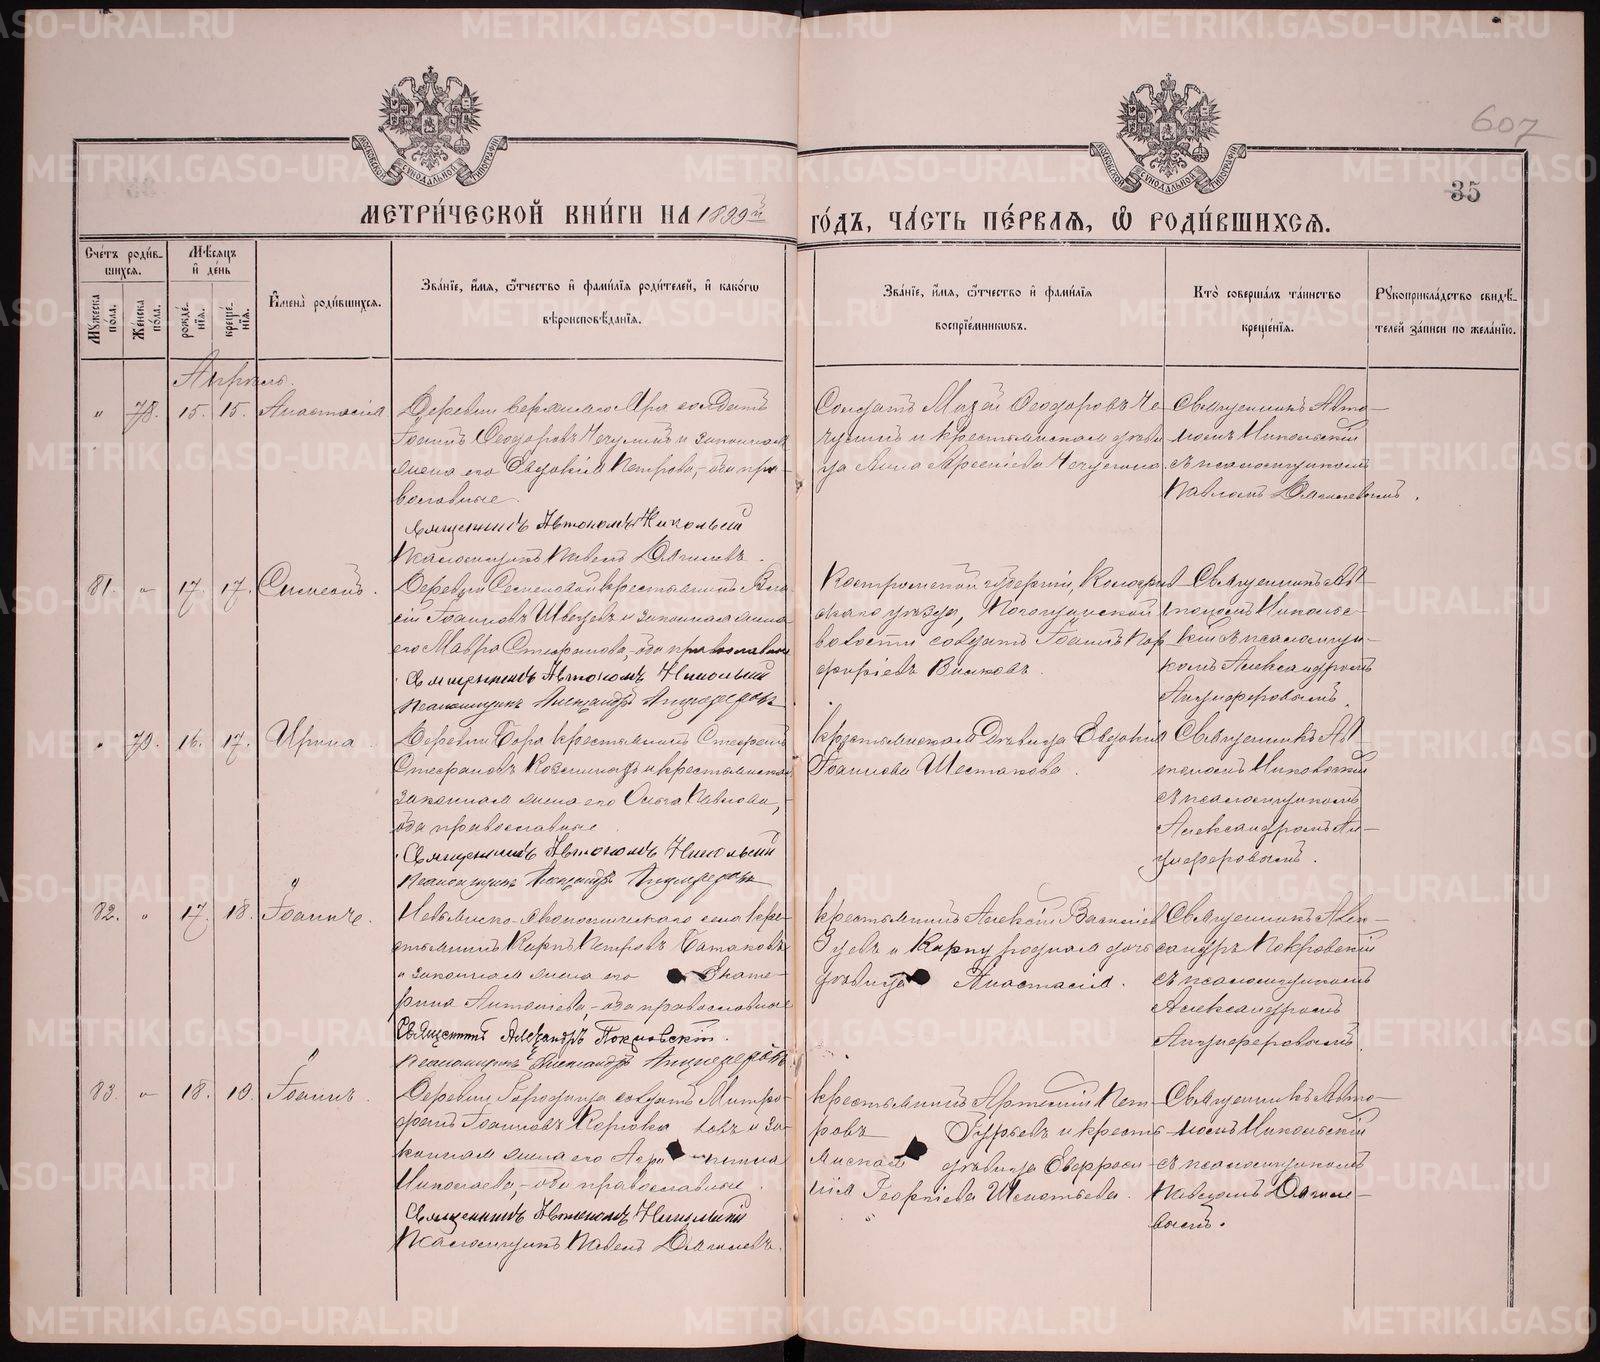 607
35
МЕТРИ́ЧЕСКОЙ КНИ́ГИ НА 1899й
ГО́ДЪ, ЧА́СТЬ ПЕ́РВАЯ, Ѡ РОДИ́ВШИХСЯ.
Сче́тъ роди́вшихся.
Мѣ́сяцъ и де́нь
Мꙋ́жеска по́ла.
Же́нска по́ла.
рожде́нїя.
креще́нїя.
И҆мена̀ роди́вшихся.
Зва́нїе, и҆́мя, ѻ҆́тчество и҆ фами́лїя роди́телей, и҆ како́гѡ
вѣроисповѣ́данїя.
Зва́нїе, и҆́мя, ѻ҆́тчество и҆ фами́лїя
воспрїе́мниковъ.
Кто̀ соверша́лъ та́инство
креще́нїя.
Рꙋкоприкла́дство свидѣ́-
телей за́писи по жела́нїю.
Апрѣль.
" 78. 15. 15. Анастасія
Деревни Яра солдатъ
Іоаннъ Ѳеодоровъ Чечулинъ и законная
жена его Евдокія Петрова,-оба пра-
вославные.
Священникъ Автономъ Никольскій
Псаломщикъ Павелъ
Солдатъ Ѳеодоровъ Че-
чулинъ и крестьянская дѣви-
ца Анна Арсеніева Чечулина
Священникъ Авто-
номъ Никольскій
съ псаломщикомъ
Павломъ
81. " 17. 17. Симеонъ.
Деревни Семеновой крестьянинъ
Іоанновъ Швецевъ и законная жена
его Мавра Стефанова,-оба православные
Священникъ Автономъ Никольскій
Псаломщикъ Александръ Анциферовъ
Костромской губерніи,
скаго уѣзда,
волости солдатъ Іоаннъ Пор-
фиріевъ
Священникъ Авт-
ономъ Николь-
скій съ псаломщи-
комъ Александромъ
Анциферовымъ.
" 79. 16. 17. Ирина.
Деревни Бора крестьянинъ Стефанъ
Стефановъ и крестьянская
законная жена его Ольга Павлова,
оба православные.
Священникъ Автономъ Никольскій
Псаломщикъ Александръ Анциферовъ
крестьянская дѣвица Евдокія
Іоаннова Шестакова.
Священникъ Авт-
ономъ Никольскій
съ псаломщикомъ
Александромъ Ан-
циферовымъ.
82. " 17. 18. Іоаннъ.
села кре-
стьянинъ Карпъ Петровъ Батаковъ
и законная жена его Екате-
рина Антоніева,-оба православные
Священникъ Александръ Покровскій.
Псаломщикъ Александръ Анциферовъ.
крестьянинъ Алексій Василіев
Гуевъ и Карпу родная дочь
дѣвица Анастасія.
Священникъ Алек-
сандръ Покровскій
съ псаломщикомъ
Александромъ
Анциферовымъ.
83. " 18. 19. Іоаннъ.
Деревни Городища солдатъ Митро-
фанъ Іоанновъ и за-
конная жена его
Николаева,-оба православные.
Священникъ Автономъ Никольскій
Псаломщикъ Павелъ
крестьянинъ Артемій Пет-
ровъ Гурьевъ и кресть-
янская дѣвица Евфроси-
нія Георгіева Игнатьева.
Священникъ Авто-
номъ Никольскій
съ псаломщикомъ
Павломъ
METRIKI.GASO-URAL.RU